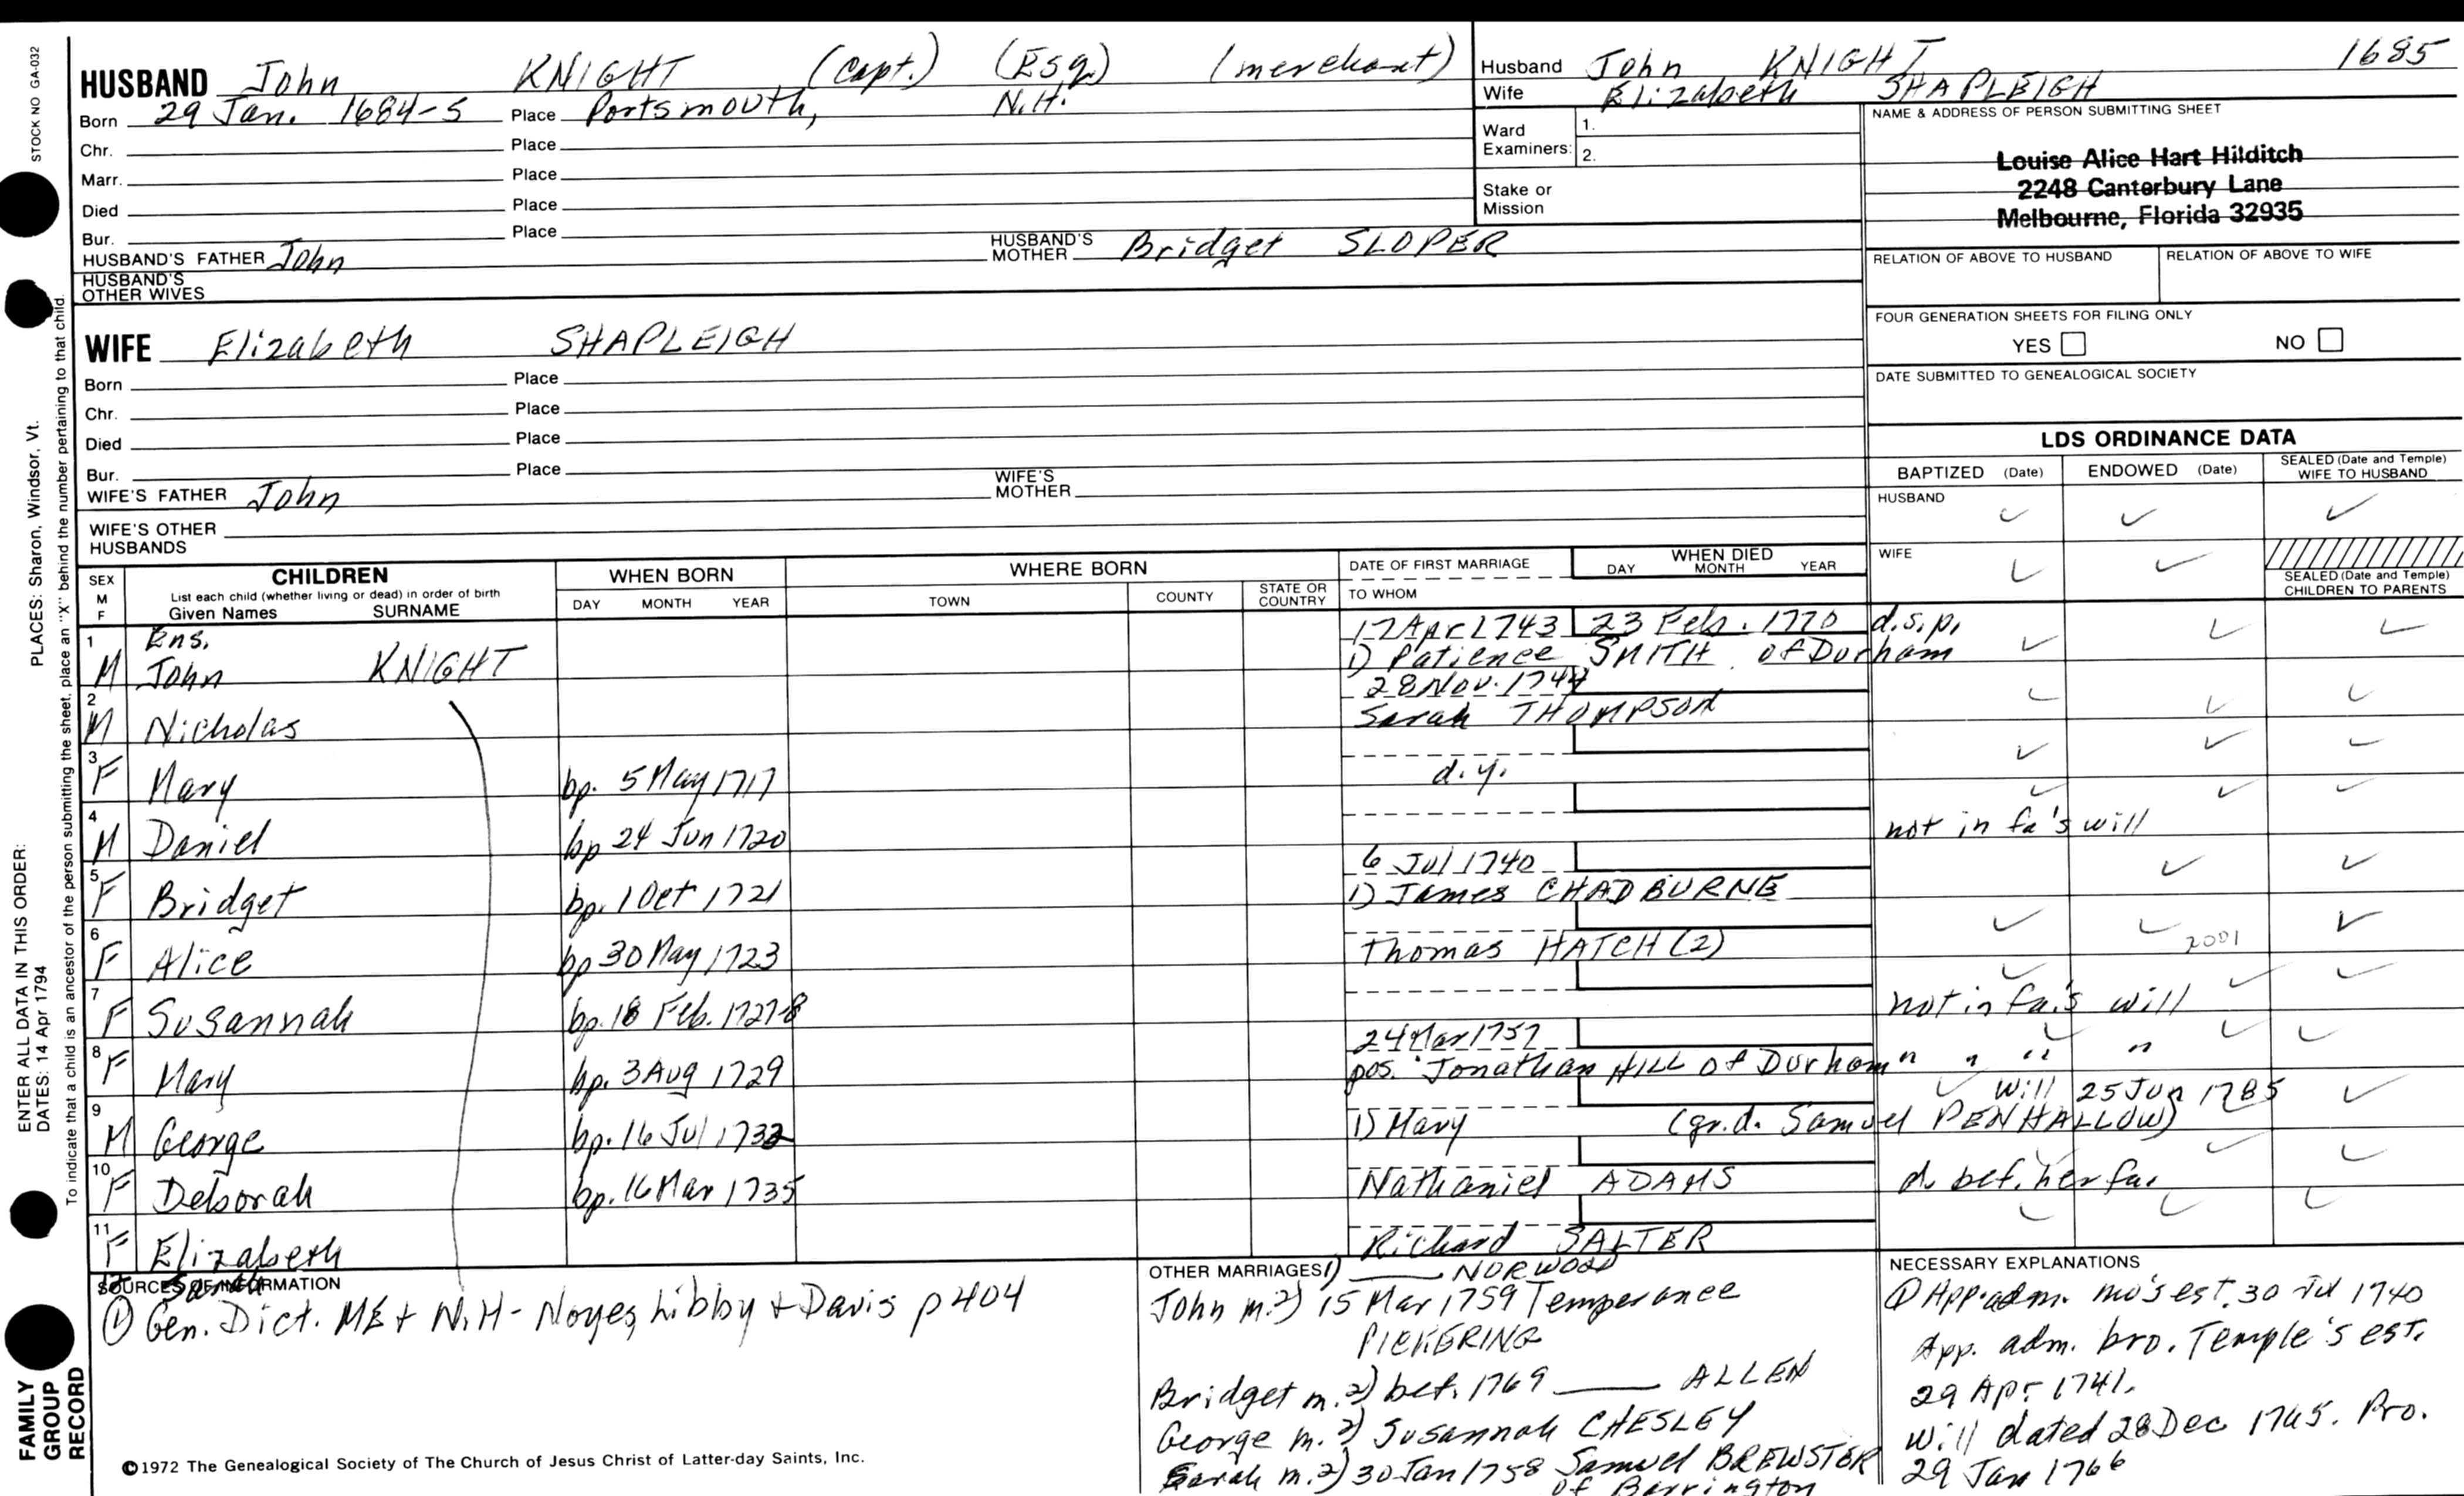 STOCK NO GA-032
PLACES: Sharon, Windsor, Vt.
ENTER ALL DATA IN THIS ORDER:
DATES: 14 Apr 1794
To indicate that a child is an ancestor of the person submitting the sheet, place an "X" behind the number pertaining to that child.
FAMILY GROUP RECORD
HUSBAND John KNIGHT (Capt.) (Esq) (merchant)
Born 29 Jan. 1684-5 Place Portsmouth, N.H.
Chr. Place
Marr. Place
Died Place
Bur. Place
HUSBAND'S FATHER John HUSBAND'S MOTHER Bridget SLOPER
HUSBAND'S OTHER WIVES
Husband John KNIGHT 1685
Wife Elizabeth SHAPLEIGH
Ward Examiners: 1.
2.
Stake or Mission
NAME & ADDRESS OF PERSON SUBMITTING SHEET
Louise Alice Hart Hilditch
2248 Canterbury Lane
Melbourne, Florida 32935
RELATION OF ABOVE TO HUSBAND RELATION OF ABOVE TO WIFE
FOUR GENERATION SHEETS FOR FILING ONLY
YES NO
DATE SUBMITTED TO GENEALOGICAL SOCIETY
WIFE Elizabeth SHAPLEIGH
Born Place
Chr. Place
Died Place
Bur. Place
WIFE'S FATHER John WIFE'S MOTHER
WIFE'S OTHER HUSBANDS
LDS ORDINANCE DATA
BAPTIZED (Date) ENDOWED (Date) SEALED (Date and Temple) WIFE TO HUSBAND
HUSBAND
WIFE
SEALED (Date and Temple) CHILDREN TO PARENTS
SEX M F CHILDREN WHEN BORN WHERE BORN DATE OF FIRST MARRIAGE WHEN DIED
List each child (whether living or dead) in order of birth
Given Names SURNAME DAY MONTH YEAR TOWN COUNTY STATE OR COUNTRY TO WHOM DAY MONTH YEAR
1 Ens. 17 Apr 1743 23 Feb. 1770 d.s.p.
M John KNIGHT 1) Patience SMITH of Durham
2 28 Nov. 1744
M Nicholas Sarah THOMPSON
3
F Mary bp. 5 May 1717 d.y.
4
M Daniel bp 24 Jun 1720 not in fa's will
5 6 Jul 1740
F Bridget bp. 1 Oct 1721 1) James CHADBURNE
6
F Alice bp 30 May 1723 Thomas HATCH (2) 2001
7
F Susannah bp. 18 Feb. 1727-8 not in fa's will
8 24 Mar 1757
F Mary bp. 3 Aug 1729 pos. Jonathan HILL of Durham " " " "
9 will 25 Jun 1785
M George bp. 16 Jul 1732 1) Mary (gr.d. Samuel PENHALLOW)
10
F Deborah bp. 16 Mar 1735 Nathaniel ADAMS d. bef. her fa.
11
F Elizabeth Richard SALTER
Sarah 1) ____ NORWOOD
SOURCES OF INFORMATION
① Gen. Dict. ME + N.H - Noyes, Libby + Davis p 404
©1972 The Genealogical Society of The Church of Jesus Christ of Latter-day Saints, Inc.
OTHER MARRIAGES
John m. 2) 15 Mar 1759 Temperance
PICKERING
Bridget m. 2) bef. 1769 ____ ALLEN
George m. 2) Susannah CHESLEY
Sarah m. 2) 30 Jan 1758 Samuel BREWSTER
of Barrington
NECESSARY EXPLANATIONS
① App. adm. mo's est. 30 Jul 1740
App. adm. bro. Temple's est.
29 Apr 1741.
Will dated 28 Dec 1765. Pro.
29 Jan 1766